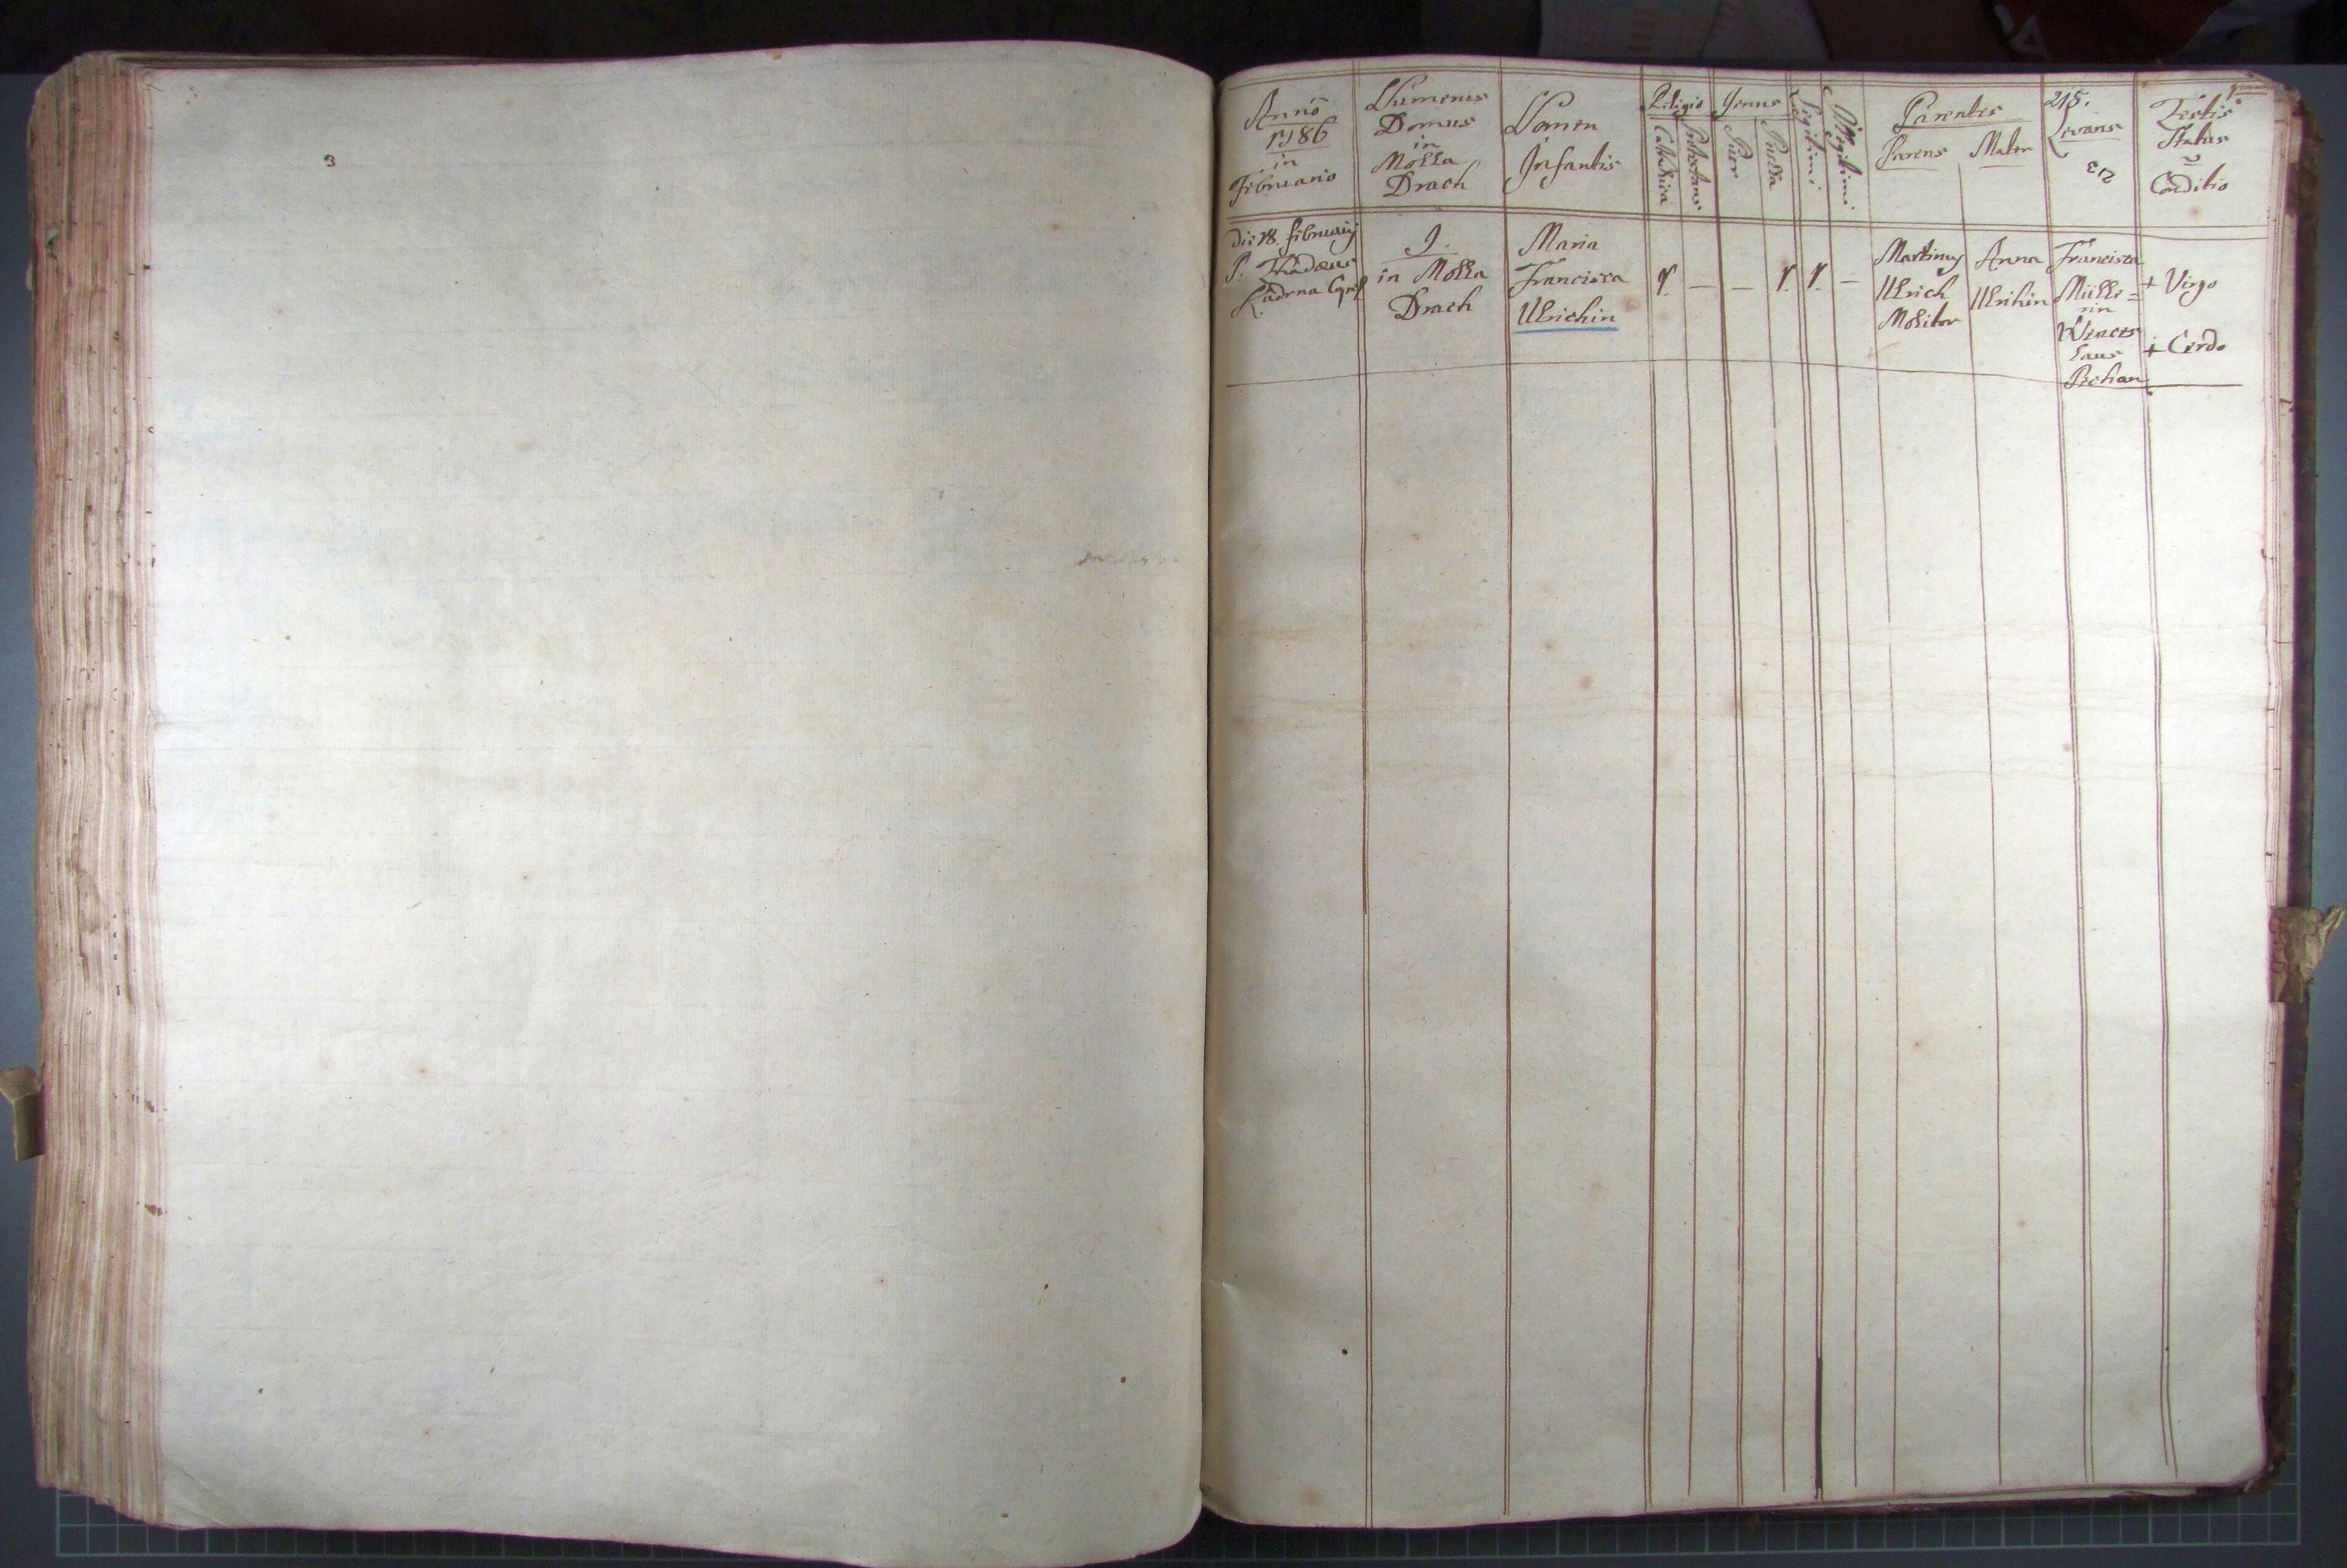 Anno
1786
in
Februario
Numerus
Domus
in
Molla
Drach
Nomen
Infantis
Religio
Catholica
Protestans
Genus
Puer
Puella
Legitimi
Illegitimi
Parentes
Parens Mater
215.
Levans
213
Testis
Status
Conditio
Die 18. februarÿ
P. Thadæus
Kudrna
9.
in Molla
Drach
Maria
Francisca
Ulrichin
1. — — 1. 1. —
Martinus
Ulrich
Molitor
Anna
Ulrichin
Francisca
Mülle=
rin
Wences
laus
Pechan
+ Virgo
+ Cerdo